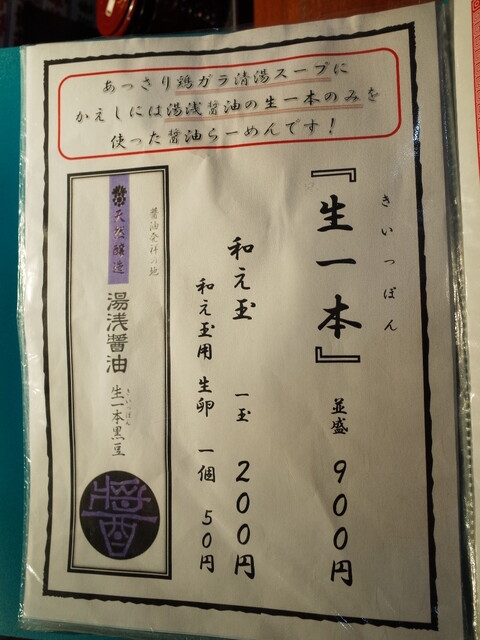 あっさり鶏ガラ清湯スープに
かえしには湯浅醤油の生一本のみを
使った醤油らーめんです！
きいっぽん
『生一本』 並盛 900円
和え玉 一玉 200円
和え玉用 生卵 一個 50円
醤油発祥の地
天然醸造
湯浅醤油
きいっぽん
生一本黒豆
醬